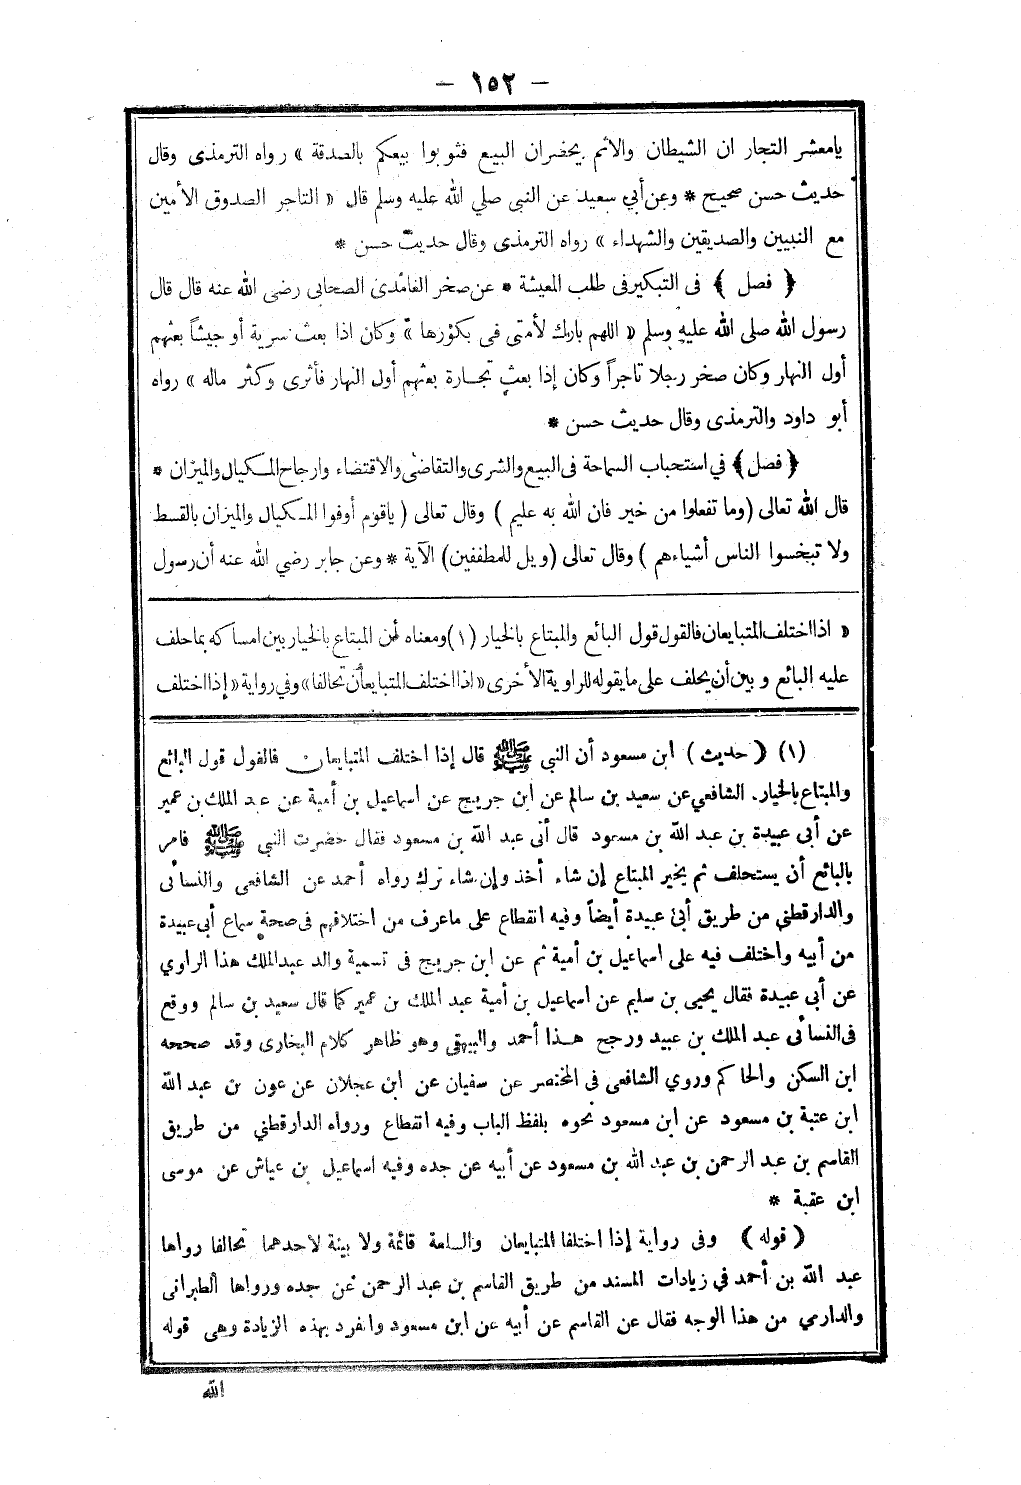 – ١٥٢ –
يامعشر التجار ان الشيطان والاثم يحضران البيع فثوبوا بيعكم بالصدقة » رواه الترمذى وقال
حديث حسن صحيح * وعن أبي سعيد عن النبى صلي الله عليه وسلم قال « التاجر الصدوق الأمين
مع النبيين والصديقين والشهداء » رواه الترمذى وقال حديث حسن *
﴿ فصل ﴾ فى التبكير فى طلب المعيشة * عن صخر الغامدى الصحابى رضى الله عنه قال قال
رسول الله صلى الله عليه وسلم « اللهم بارك لأمتى فى بكورها » وكان اذا بعث سرية أو جيشاً بعثهم
أول النهار وكان صخر رجلا تاجراً وكان إذا بعث تجارة بعثهم أول النهار فأثرى وكثر ماله » رواه
أبو داود والترمذى وقال حديث حسن *
﴿ فصل ﴾ في استحباب السماحة فى البيع والشرى والتقاضى والاقتضاء وارجاح المكيال والميزان *
قال الله تعالى ( وما تفعلوا من خير فان الله به عليم ) وقال تعالى ( ياقوم أوفوا المكيال والميزان بالقسط
ولا تبخسوا الناس أشياءهم ) وقال تعالى ( ويل للمطففين ) الآية * وعن جابر رضي الله عنه أن رسول
« اذا اختلف المتبايعان فالقول قول البائع والمبتاع بالخيار (١) ومعناه أن المبتاع بالخيار بين امساكه بما حلف
عليه البائع وبين أن يحلف على ما يقوله للراوية الأخرى « اذا اختلف المتبايعان تحالفا » وفي رواية « إذا اختلف
(١) ( حديث ) ابن مسعود أن النبى ﷺ قال إذا اختلف المتبايعان فالقول قول البائع
والمبتاع بالخيار. الشافعي عن سعيد بن سالم عن ابن جريج عن اسماعيل بن أمية عن عبد الملك بن عمير
عن أبي عبيدة بن عبد الله بن مسعود قال أتى عبد الله بن مسعود فقال حضرت النبي ﷺ فامر
بالبائع أن يستحلف ثم يخير المبتاع إن شاء أخذ وإن شاء ترك رواه أحمد عن الشافعى والنسائى
والدارقطني من طريق أبي عبيدة أيضاً وفيه انقطاع على ماعرف من اختلافهم فى صحة سماع أبى عبيدة
من أبيه واختلف فيه على اسماعيل بن أمية ثم عن ابن جريج فى تسمية والد عبد الملك هذا الراوي
عن أبي عبيدة فقال يحيى بن سليم عن اسماعيل بن أمية عبد الملك بن عمير كما قال سعيد بن سالم ووقع
فى النسائى عبد الملك بن عبيد ورجح هذا أحمد والبيهقى وهو ظاهر كلام البخارى وقد صححه
ابن السكن والحاكم وروي الشافعى فى المختصر عن سفيان عن ابن عجلان عن عون بن عبد الله
ابن عتبة بن مسعود عن ابن مسعود نحوه بلفظ الباب وفيه انقطاع ورواه الدارقطني من طريق
القاسم بن عبد الرحمن بن عبد الله بن مسعود عن أبيه عن جده وفيه اسماعيل بن عياش عن موسى
ابن عقبة *
( قوله ) وفى رواية إذا اختلفا المتبايعان والسلعة قائمة ولا بينة لاحدهما تحالفا رواها
عبد الله بن أحمد في زيادات المسند من طريق القاسم بن عبد الرحمن عن جده ورواها الطبرانى
والدارمي من هذا الوجه فقال عن القاسم عن أبيه عن ابن مسعود وانفرد بهذه الزيادة وهى قوله
الله